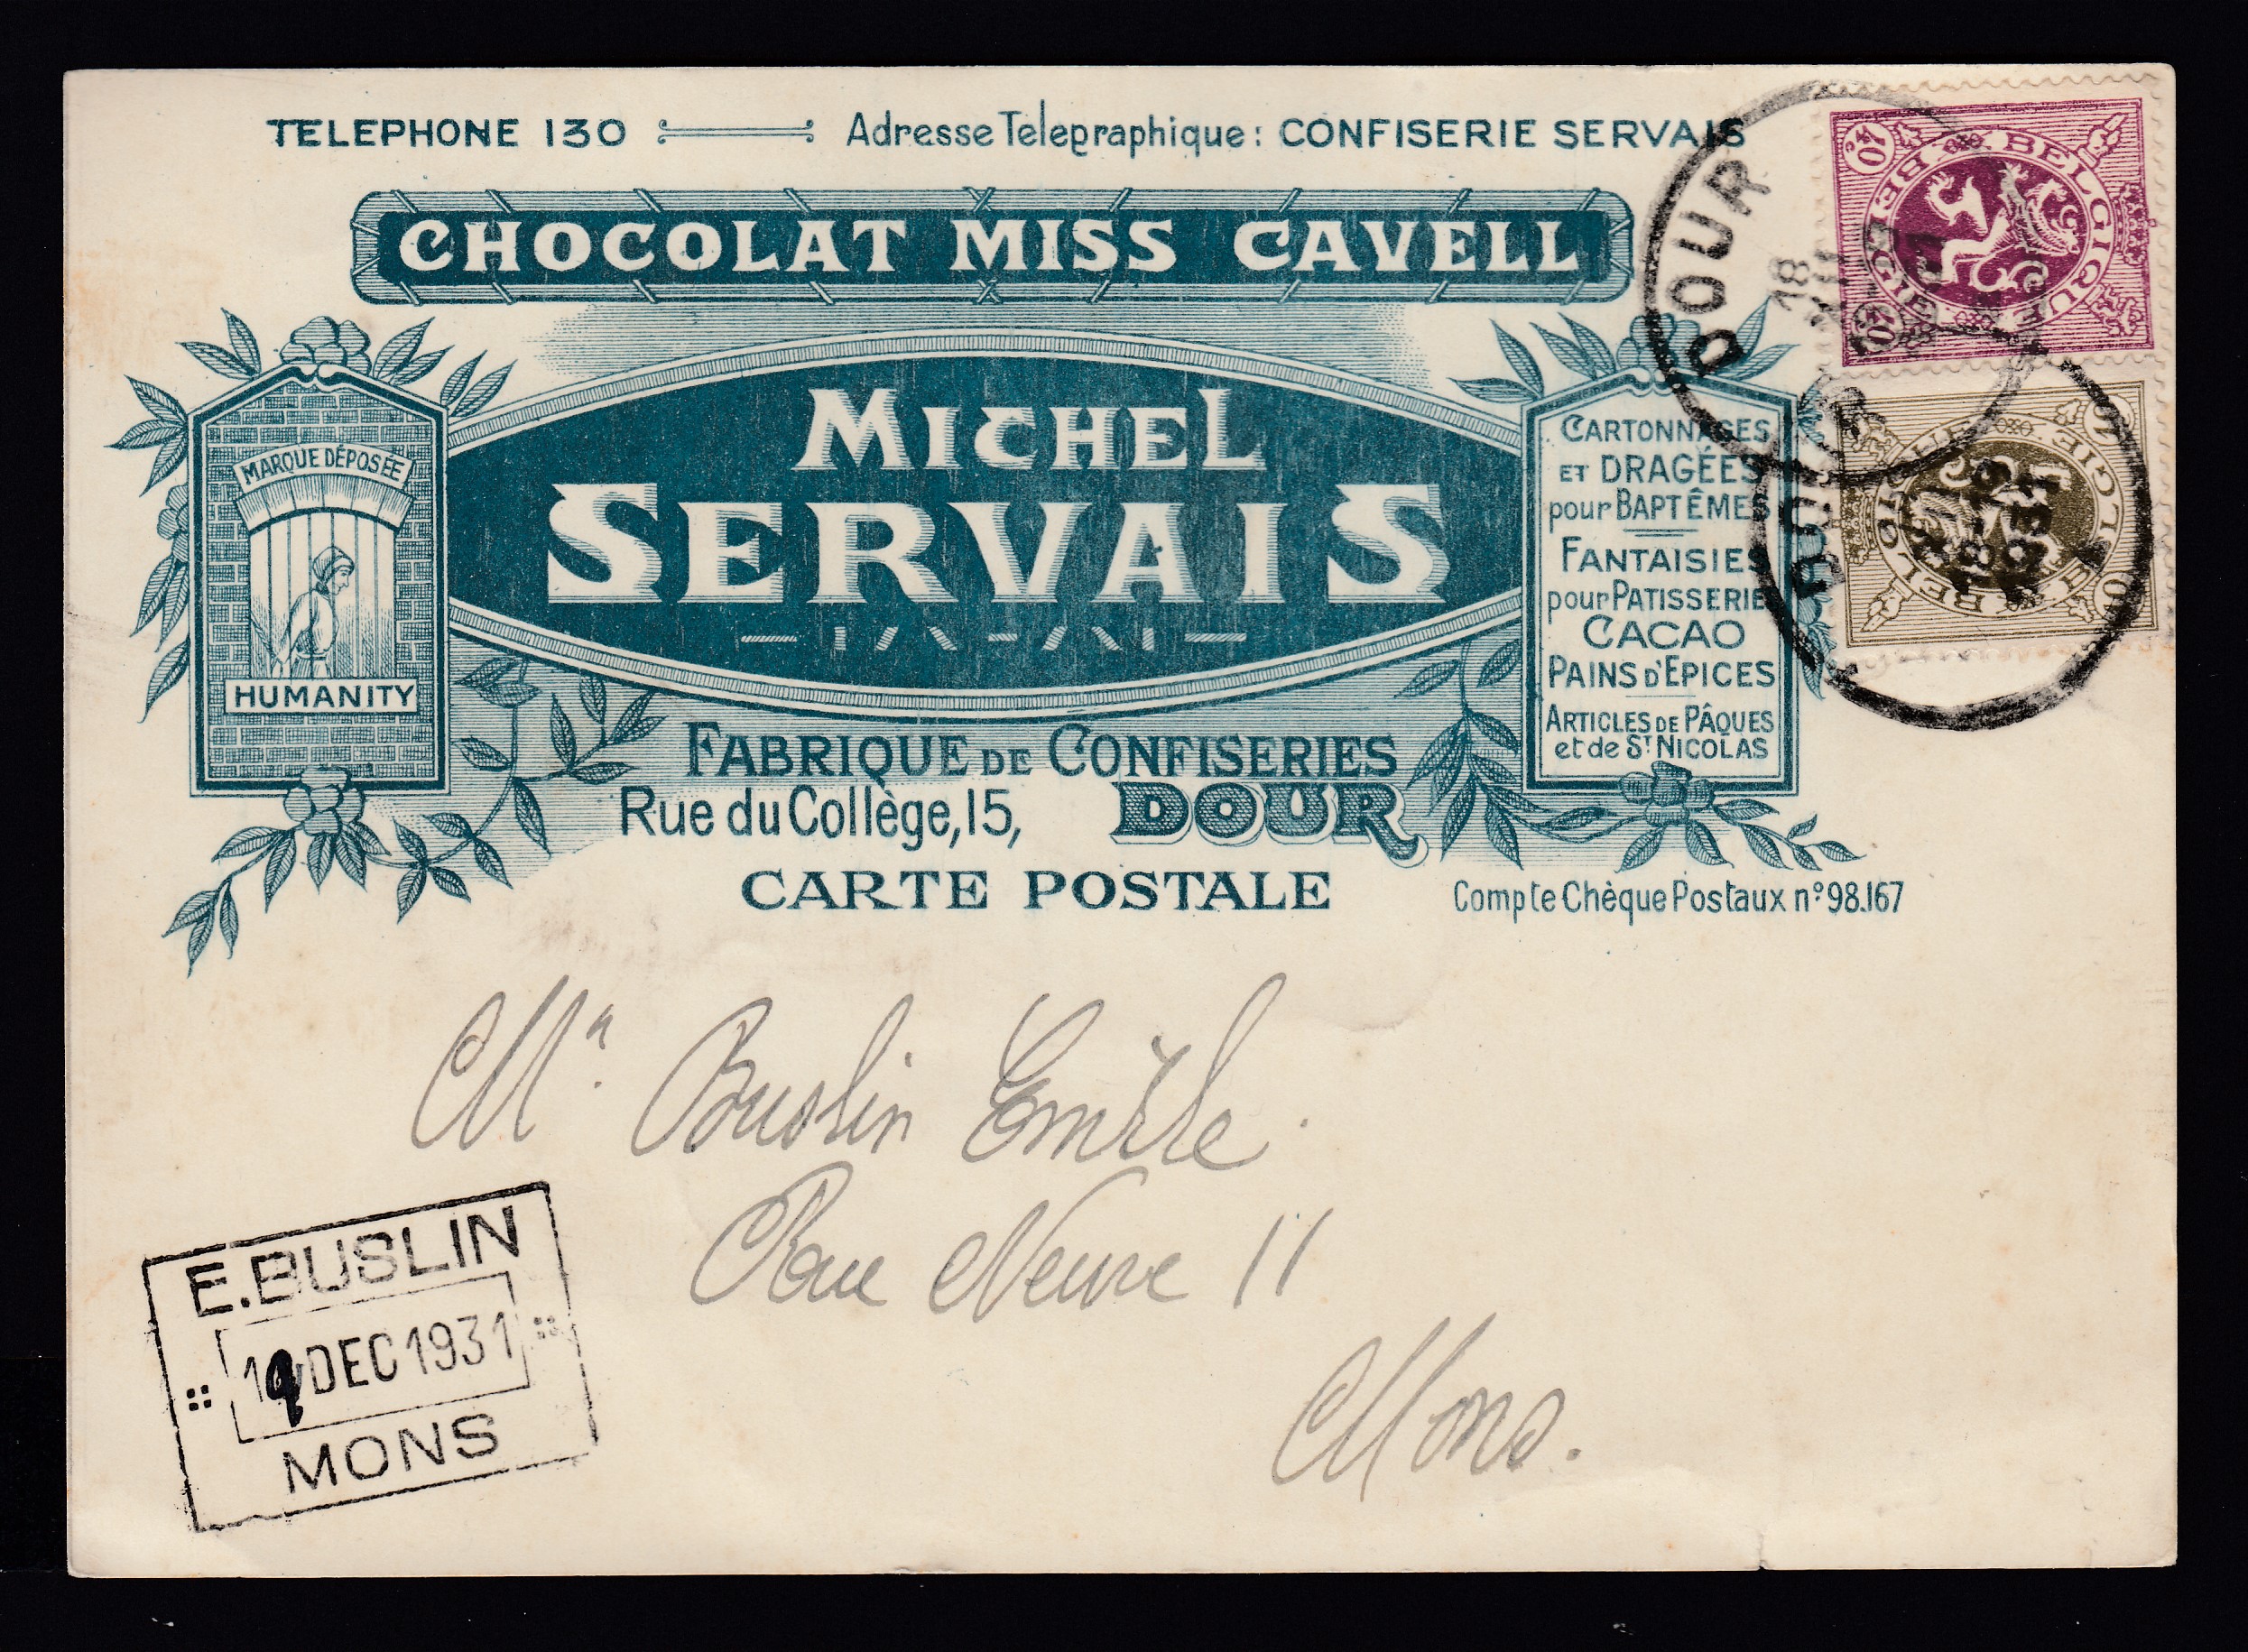 TELEPHONE 130 Adresse Telegraphique: CONFISERIE SERVAIS
CHOCOLAT MISS CAVELL
MICHEL
SERVAIS
MARQUE DÉPOSÉE
HUMANITY
CARTONNAGES
ET DRAGÉES
pour BAPTÊMES
FANTAISIES
pour PATISSERIE
CACAO
PAINS D'EPICES
ARTICLES DE PÂQUES
et de ST NICOLAS
FABRIQUE DE CONFISERIES
Rue du Collège, 15, DOUR
CARTE POSTALE
Compte Chèque Postaux n° 98.167
BELGIQUE
BELGIË
40c
40c
DOUR
18
DOUR
10
10
Mr. Buslin Emile.
Rue Neuve 11
Mons.
E. BUSLIN
19 DEC 1931
MONS